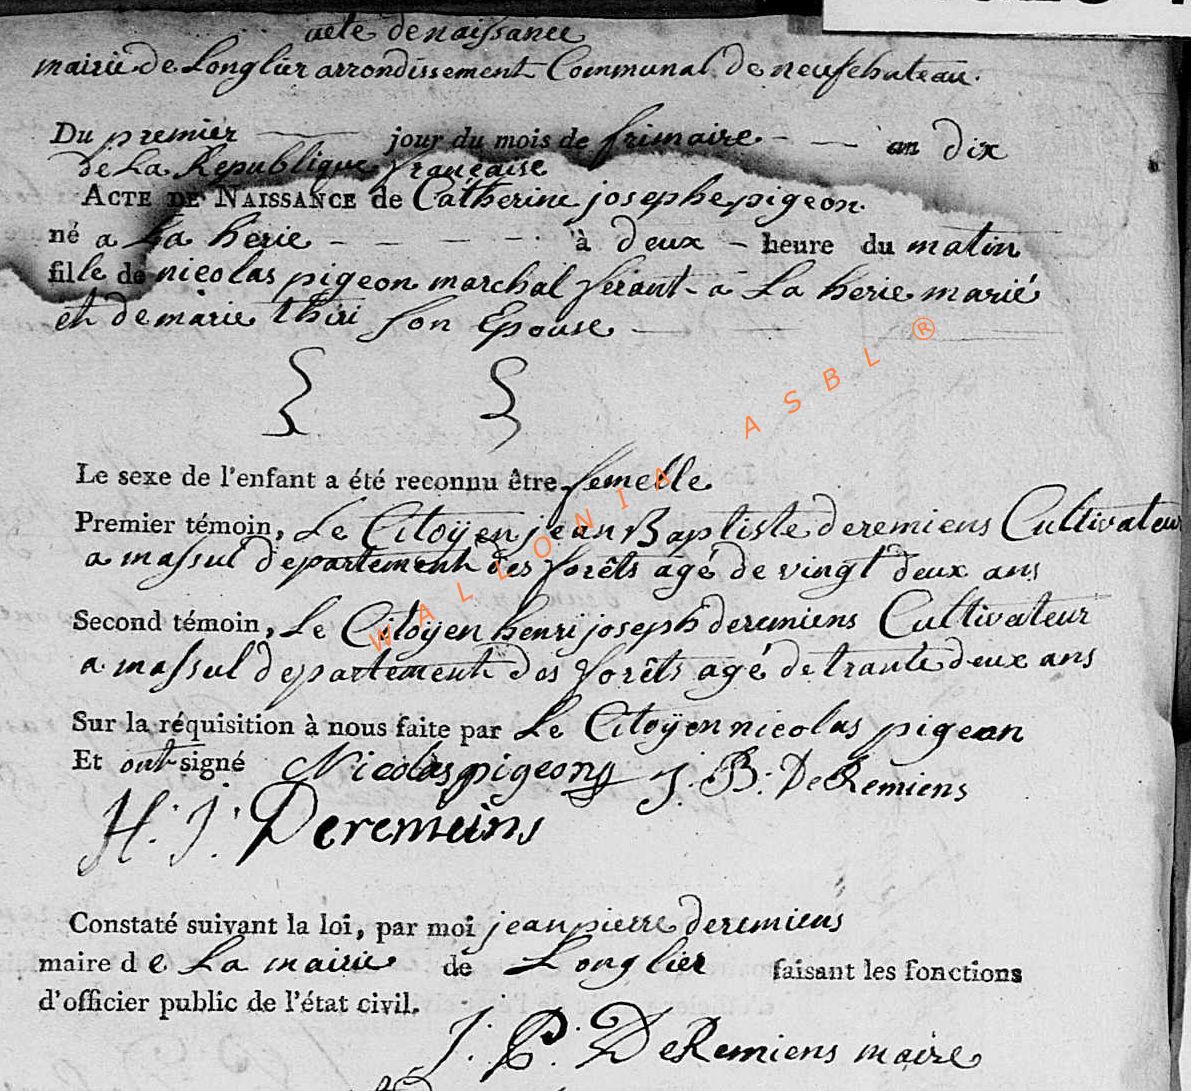 acte de naissance
mairie de Longlier arrondissement Communal de neufchateau.
Du premier jour du mois de frimaire - — an dix
de La Republique française
ACTE DE NAISSANCE de Catherine josephe pigeon.
né a La herie - - - - - à deux - heure du matin
fille de nicolas pigeon marchal ferant a La herie marié
et de marie thiri son Epouse
Le sexe de l'enfant a été reconnu être femelle
Premier témoin, Le Citoÿen jean Baptiste deremiens Cultivateur
a massul departement des forêts agé de vingt deux ans
Second témoin, Le Citoÿen henri joseph deremiens Cultivateur
a massul departement des forêts agé de trante deux ans
Sur la réquisition à nous faite par Le Citoÿen nicolas pigeon
Et ont signé Nicolas pigeon J. B. DeRemiens
H. J. Deremeins
Constaté suivant la loi, par moi jean pierre deremiens
maire de La mairie de Longlier faisant les fonctions
d'officier public de l'état civil.
J. P. DeRemiens maire
WALLONIA ASBL ®